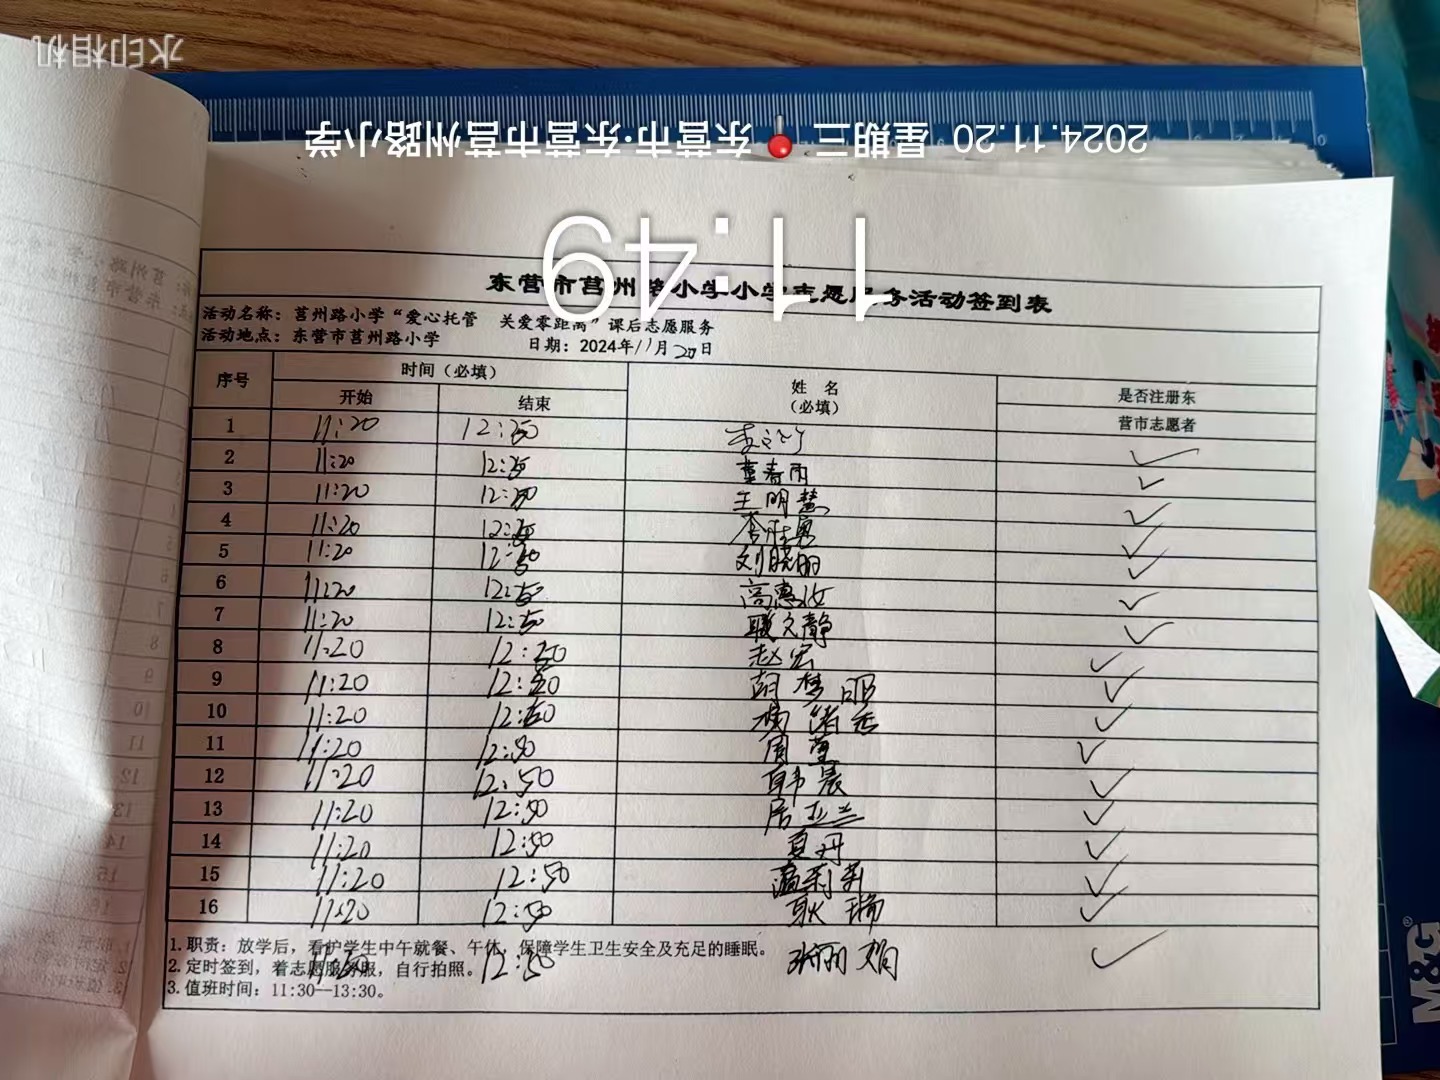 水印相机
2024.11.20 星期三 东营市·东营市莒州路小学
11:49
东营市莒州路小学小学志愿服务活动签到表
活动名称：莒州路小学“爱心托管 关爱零距离”课后志愿服务
活动地点：东营市莒州路小学 日期：2024年11月20日
序号 时间（必填） 姓 名（必填） 是否注册东营市志愿者
开始 结束
1 11:20 12:50 ✓
2 11:20 12:50 董春雨 ✓
3 11:20 12:50 王明慧 ✓
4 11:20 12:50 李胜勇 ✓
5 11:20 12:50 刘晓丽 ✓
6 11:20 12:50 高惠 ✓
7 11:20 12:50 聂文静 ✓
8 11:20 12:50 赵宏 ✓
9 11:20 12:50 胡梦 ✓
10 11:20 12:50 ✓
11 11:20 12:50 周莹 ✓
12 11:20 12:50 韩晨 ✓
13 11:20 12:50 ✓
14 11:20 12:50 夏丹 ✓
15 11:20 12:50 温莉莉 ✓
16 11:20 12:50 耿瑞 ✓
12:50 ✓
1.职责：放学后，看护学生中午就餐、午休，保障学生卫生安全及充足的睡眠。
2.定时签到，着志愿服务服，自行拍照。
3.值班时间：11:30—13:30。
M&G